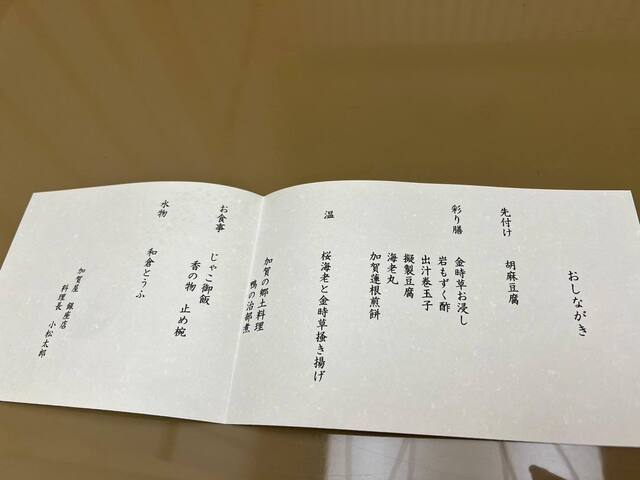 おしながき
先付け
胡麻豆腐
彩り膳
金時草お浸し
岩もずく酢
出汁巻玉子
擬製豆腐
海老丸
加賀蓮根煎餅
温
桜海老と金時草掻き揚げ
加賀の郷土料理
鴨の治部煮
お食事
じゃこ御飯
香の物 止め椀
水物
和倉とうふ
加賀屋 銀座店
料理長 小松太郎